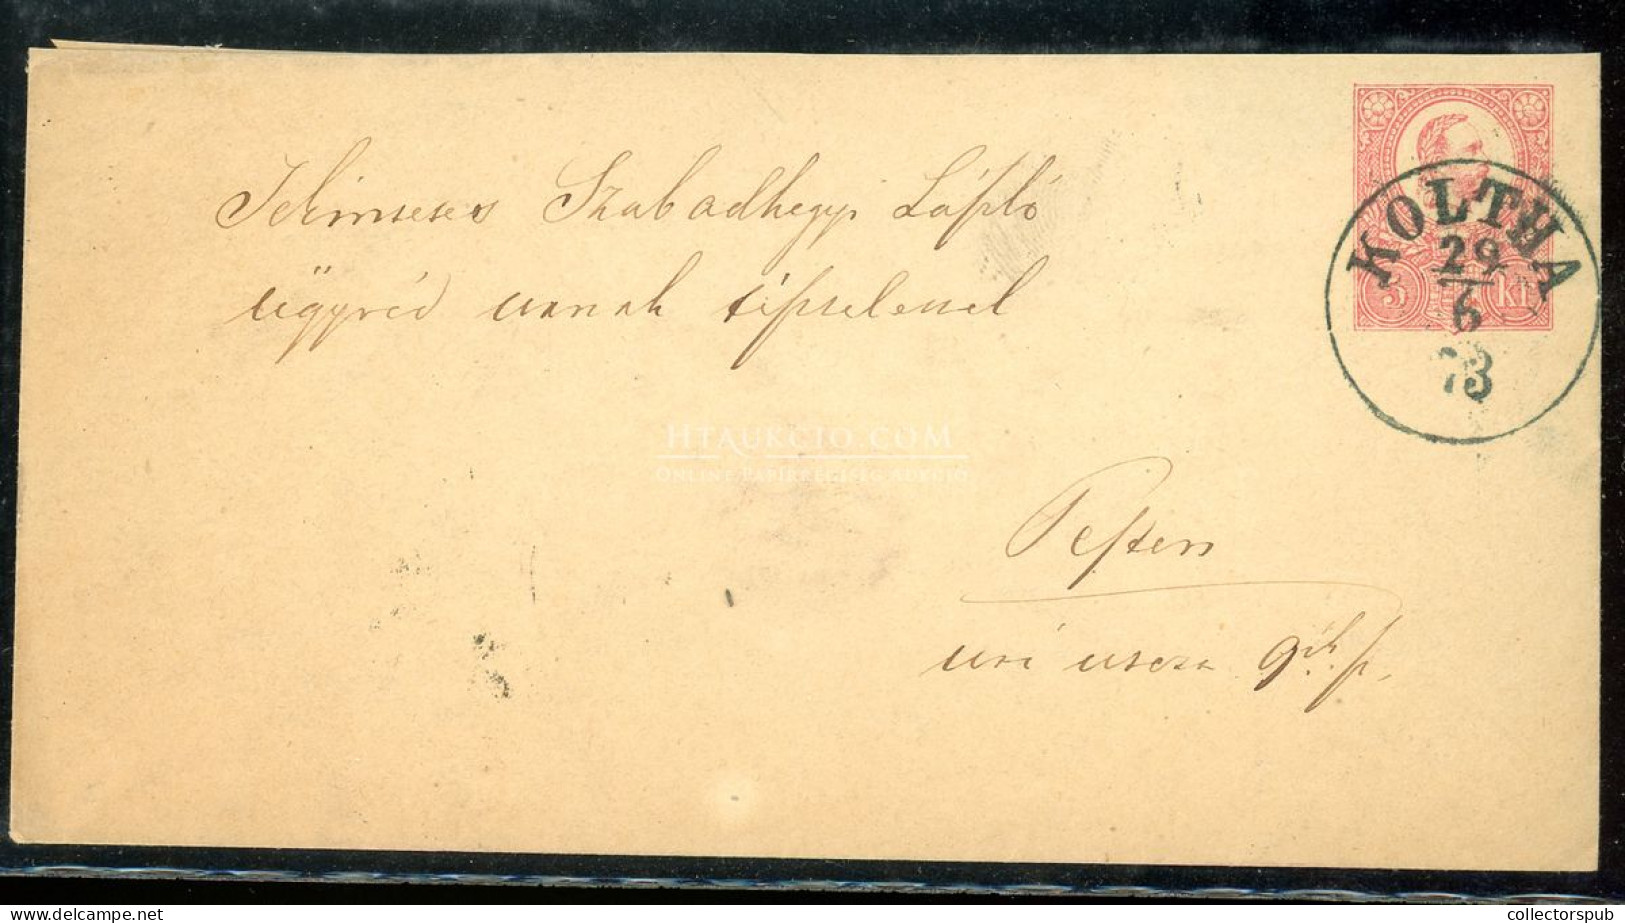 Tekintetes Szabadhegyi László
ügyvéd urnak tisztelettel
KOLTHA
29
6
73
5 Kr
HTAUKCIO.COM
ONLINE PAPÍRRÉGISÉG AUKCIÓ
Pesten
uri utcza 9ik sz.
collectorspub